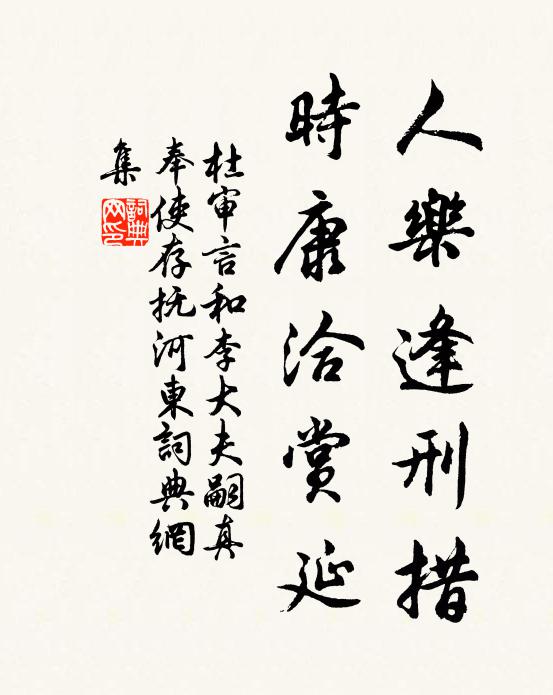 人樂逢刑措
時康洽賞延
杜审言和李大夫嗣真
奉使存抚河東詞典網
集
詞典
网印